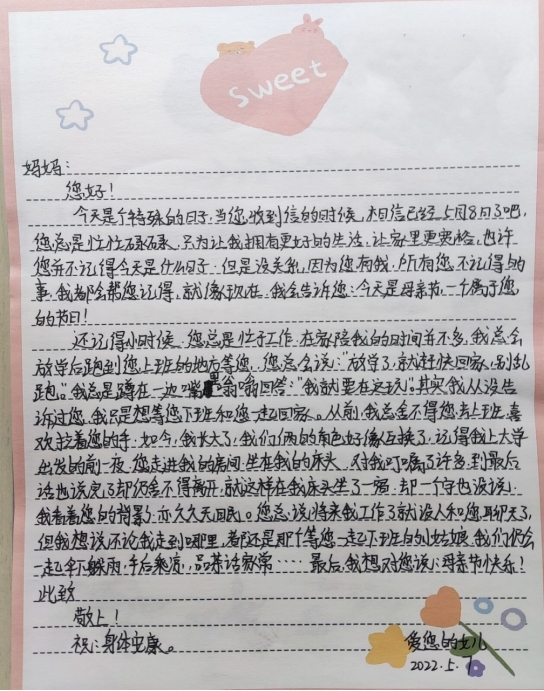 sweet
妈妈：
您好！
今天是个特殊的日子，当您收到信的时候，相信已经5月8日了吧，
您总是忙忙碌碌，只为让我拥有更好的生活，让家里更宽裕，也许
您并不记得今天是什么日子，但是没关系，因为您有我，所有您不记得的
事，我都会帮您记得，就像现在，我会告诉您：今天是母亲节，一个属于您
的节日！
还记得小时候，您总是忙于工作，在家陪我的时间并不多，我总会
放学后跑到您上班的地方等您，您总会说："放学了，就赶快回家，别乱
跑。"我总是蹲在一边嘴里翁翁回答："我就要在这玩"，其实我从没告
诉过您，我只是想等您下班和您一起回家。从前，我总舍不得您去上班，喜
欢拉着您的手，如今，我长大了，我们俩的角色好像互换了，记得我上大学
出发的前一夜，您走进我的房间，坐在我的床头，对我叮嘱了许多，到最后
话也说完了却仍舍不得离开，就这样在我床头坐了一宿，却一个字也没说，
我看着您的背影，亦久久无眠。您总说，将来我工作了就没人和您聊天了，
但我想说，不论我走到哪里，都还是那个等您一起下班的小姑娘，我们仍会
一起伞下躲雨，午后乘凉，品茶话家常····最后，我想对您说：母亲节快乐！
此致
敬上！
祝：身体安康。
爱您的女儿
2022.5.7